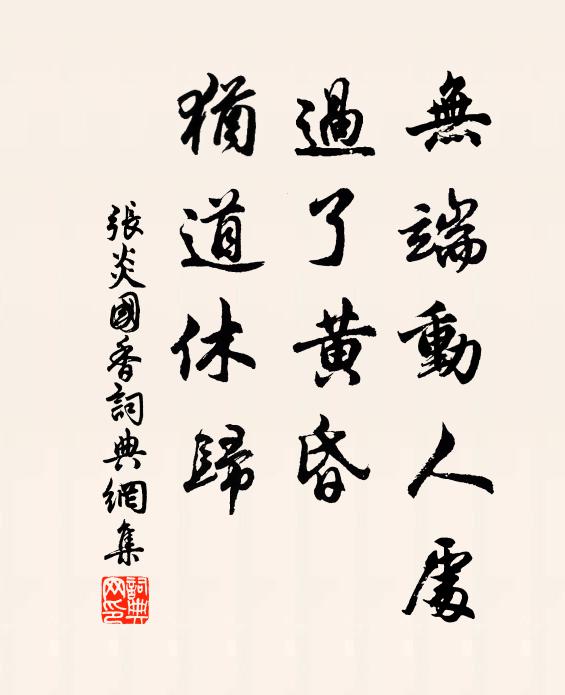 無端動人處
過了黃昏
猶道休歸
張炎國香詞典網集
詞典网印